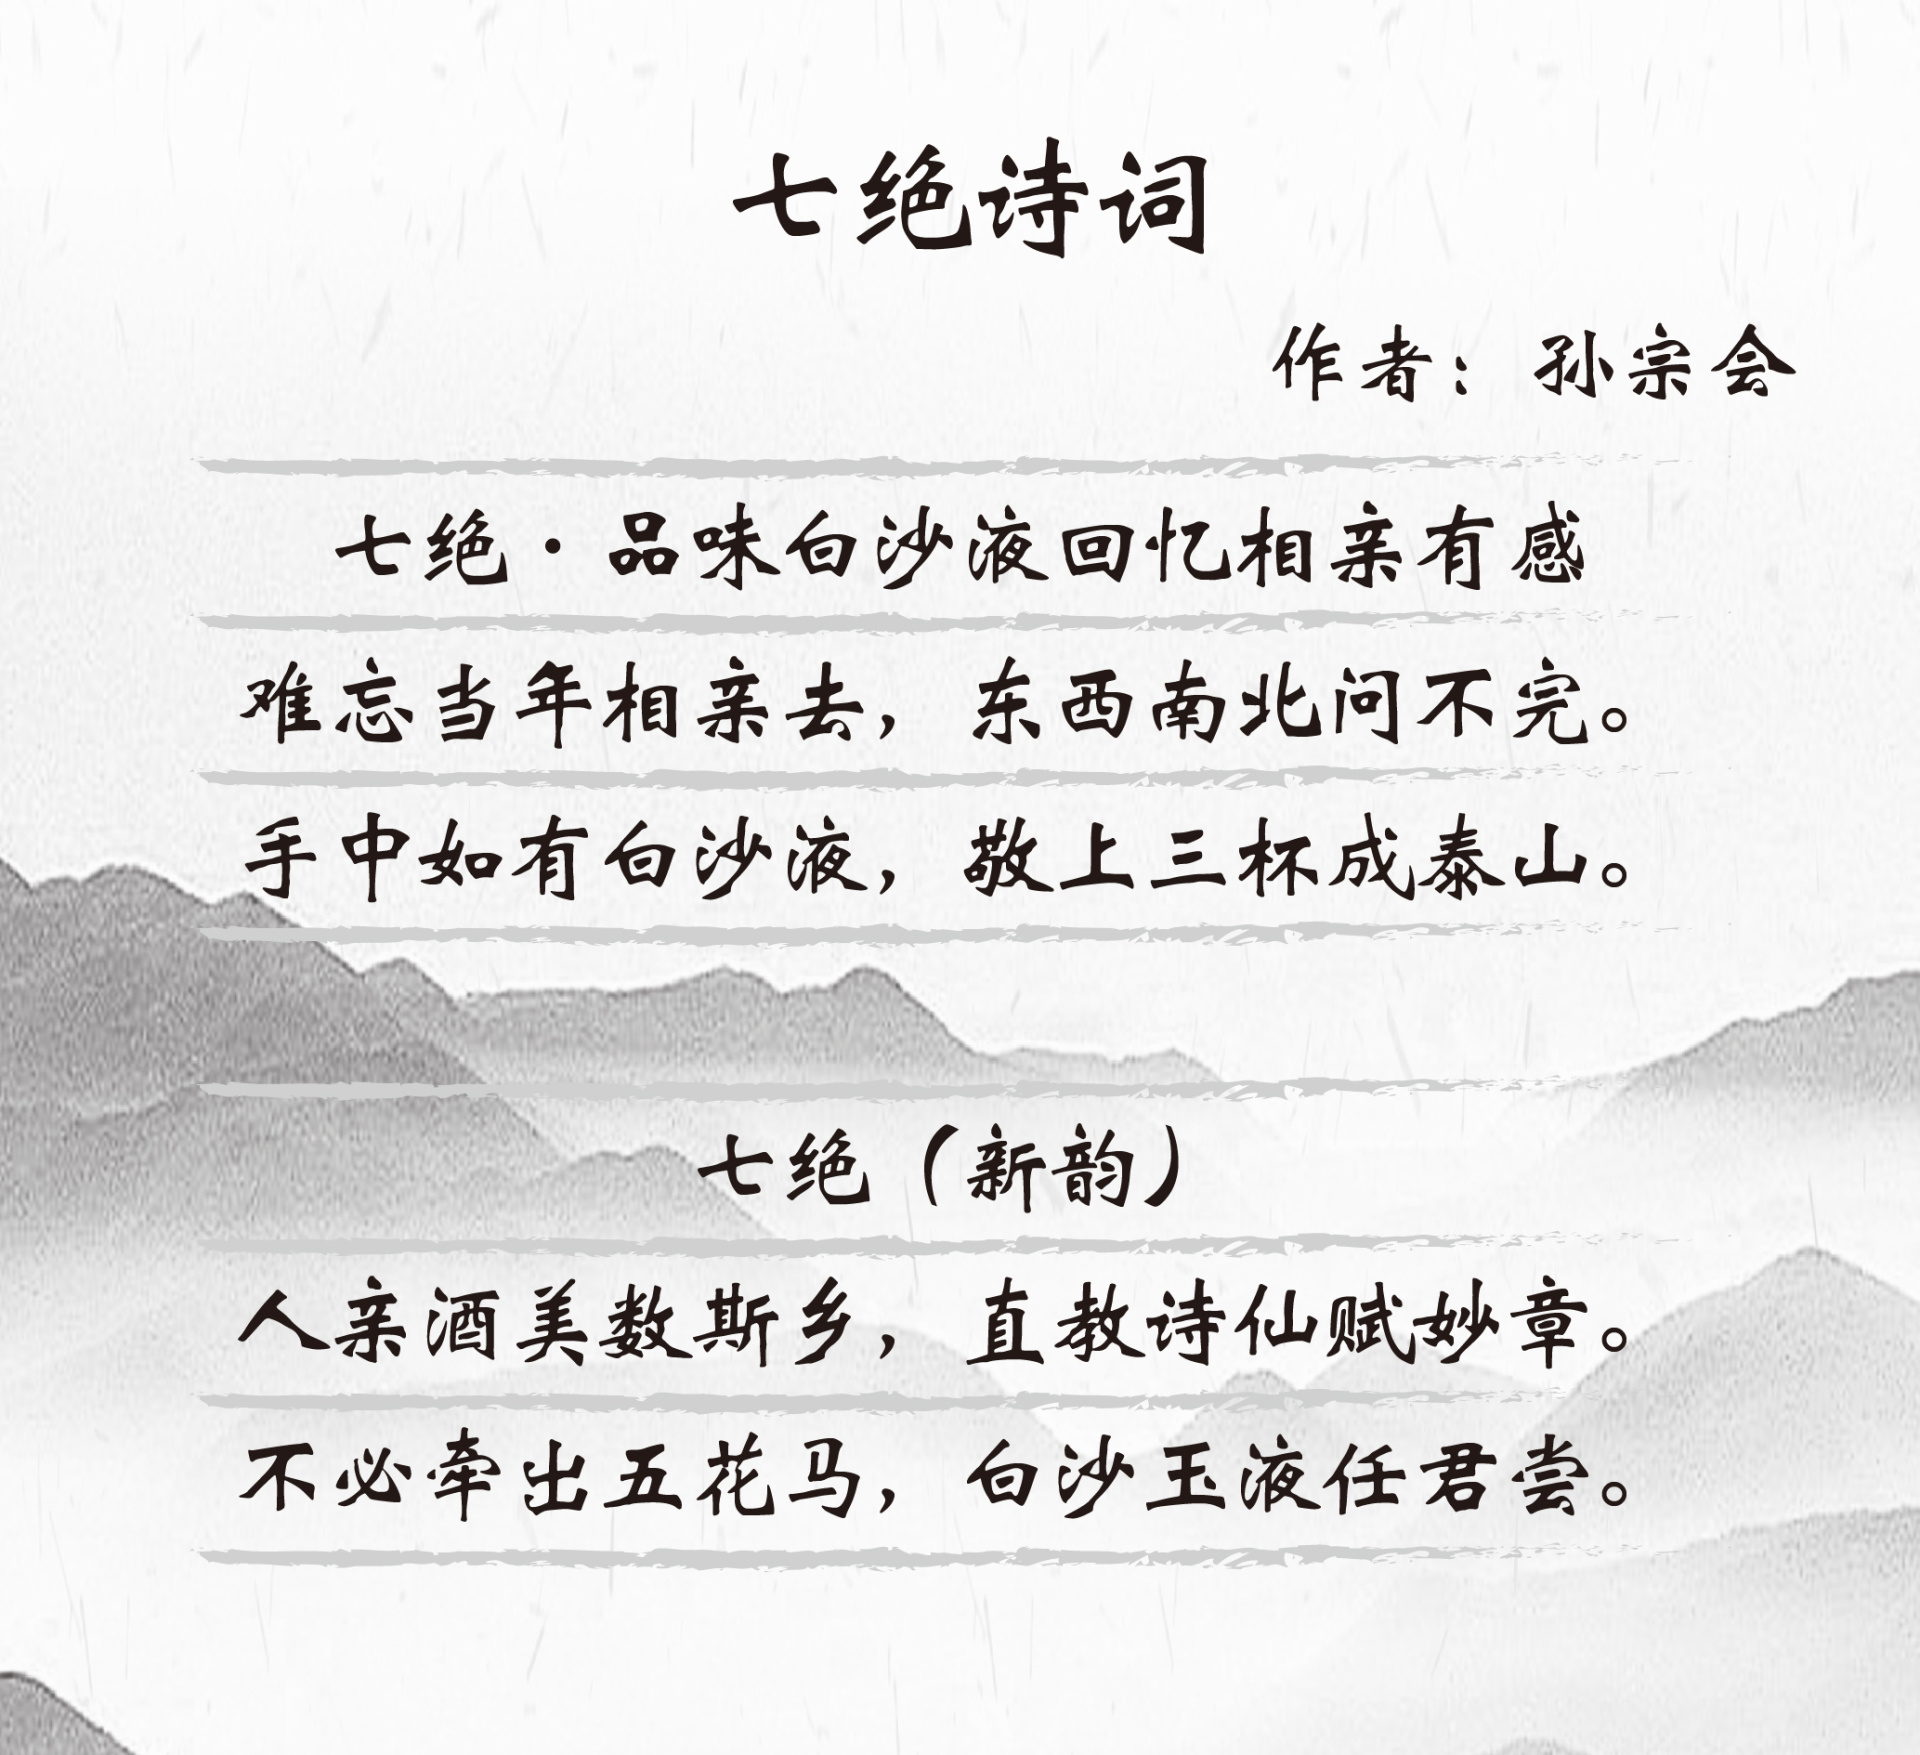 七绝诗词
作者：孙宗会
七绝·品味白沙液回忆相亲有感
难忘当年相亲去，东西南北问不完。
手中如有白沙液，敬上三杯成泰山。
七绝（新韵）
人亲酒美数斯乡，直教诗仙赋妙章。
不必牵出五花马，白沙玉液任君尝。